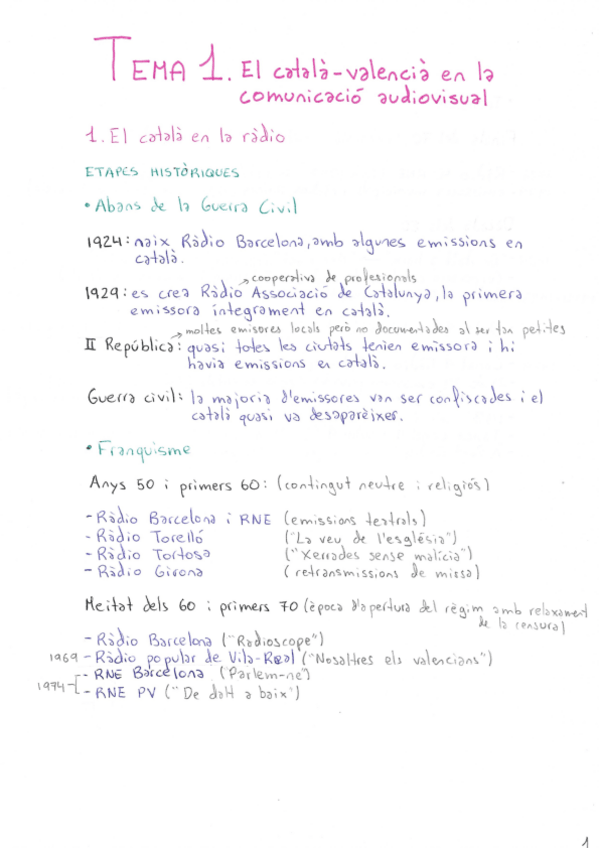 TEMA 1. El català-valencià en la
comunicació audiovisual
1. El català en la ràdio
ETAPES HISTÒRIQUES
• Abans de la Guerra Civil
1924: naix Ràdio Barcelona, amb algunes emissions en
català.
→ cooperativa de profesionals
1929: es crea Ràdio Associació de Catalunya, la primera
emissora íntegrament en català.
→ moltes emisores locals però no documentades al ser tan petites
II República: quasi totes les ciutats tenien emissora i hi
havia emissions en català.
Guerra civil: la majoria d'emissores van ser confiscades i el
català quasi va desaparèixer.
• Franquisme
Anys 50 i primers 60: (contingut neutre i religiós)
- Ràdio Barcelona i RNE (emissions teatrals)
- Ràdio Torelló ("La veu de l'església")
- Ràdio Tortosa ("Xerrades sense malícia")
- Ràdio Girona (retransmissions de missa)
Meitat dels 60 i primers 70 (època d'apertura del règim amb relaxament
de la censura)
- Ràdio Barcelona ("Radioscope")
1969 - Ràdio popular de Vila-Real ("Nosaltres els valencians")
1974 - RNE Barcelona ("Parlem-ne")
- RNE PV ("De dalt a baix")
1